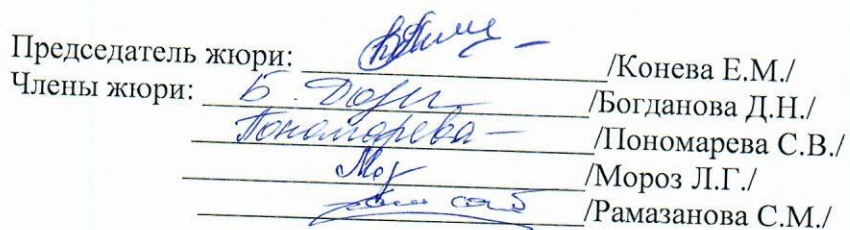 Председатель жюри: /Конева Е.М./
Члены жюри: /Богданова Д.Н./
Пономарева /Пономарева С.В./
/Мороз Л.Г./
/Рамазанова С.М./